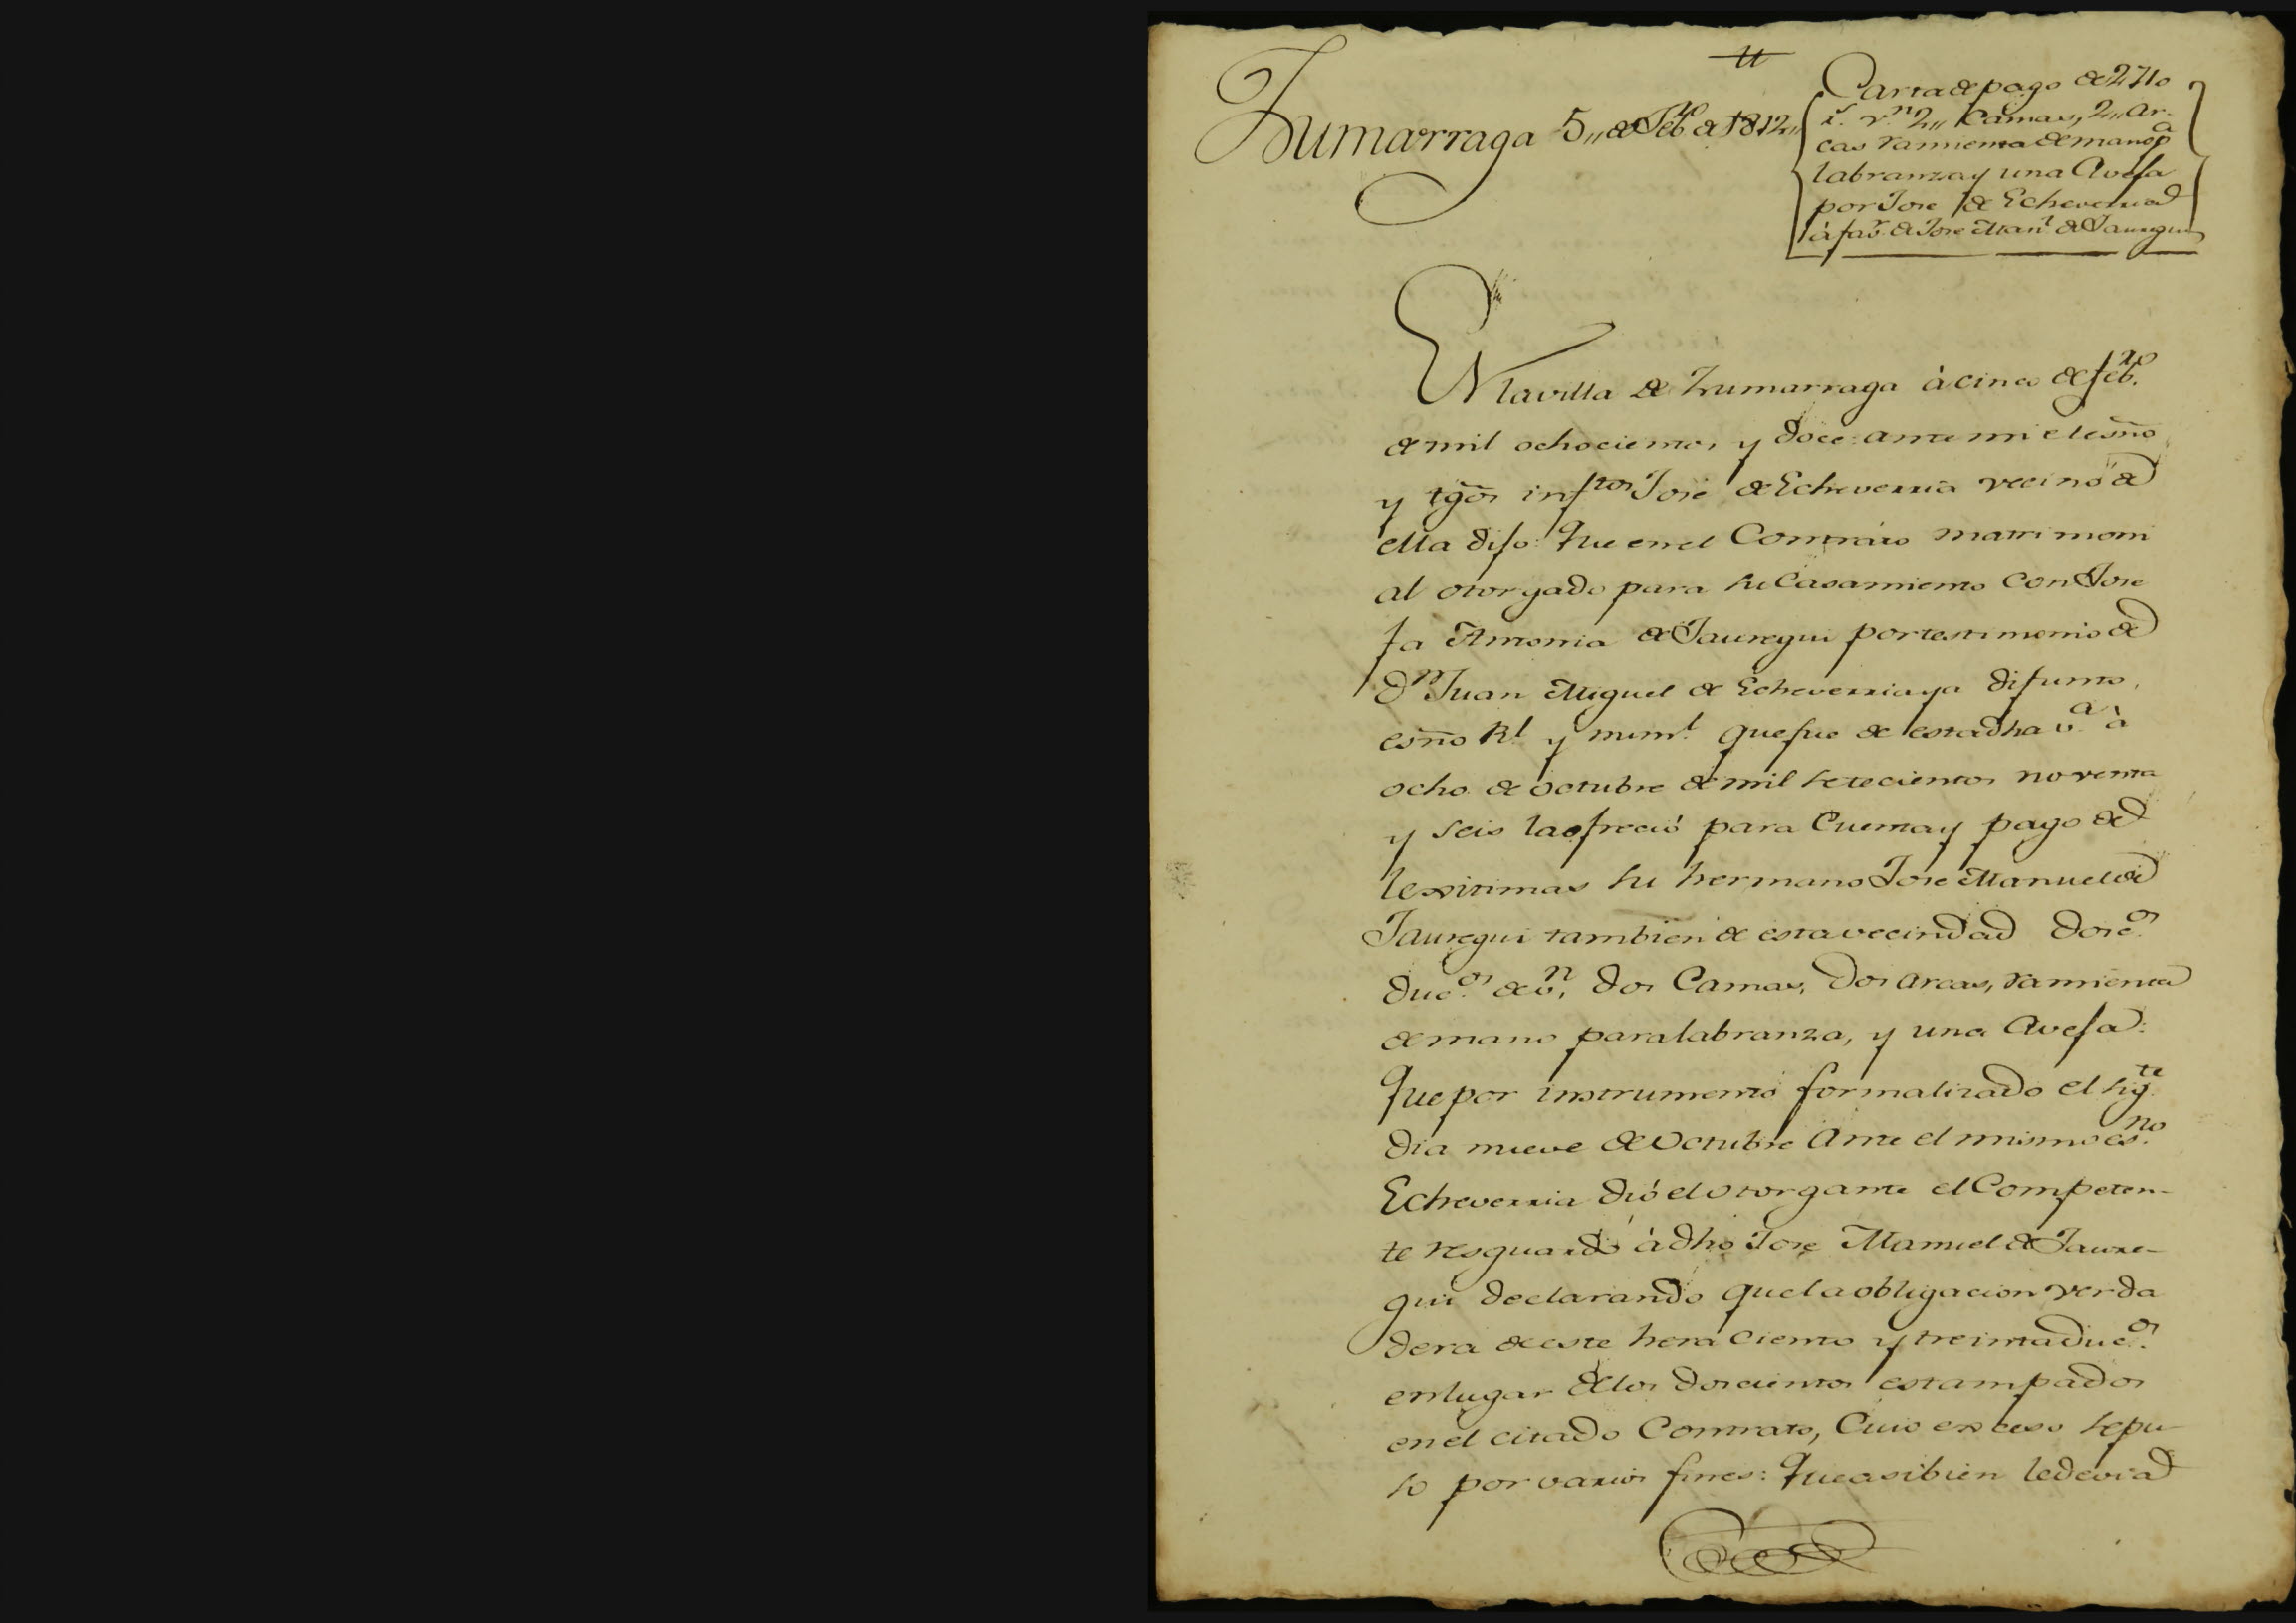 Zumarraga 5,, de Feb.ro de 1812,,
Carta de pago de 2710
r.s v.n 2,, Camas, 2,, ar-
cas ramienta de mano p.a
labranza y una Aveja
por Jose de Echeverria
à fav.r de Jose Man.l de Jauregui
EN la villa de Zumarraga à cinco de feb.ro
de mil ochocientos y doce: ante mi el esño
y tgõs inf.tos Jose de Echeverria vecino de
ella dijo: Que en el Contrato matrimoni
al otorgado para su Casamiento con Jose
fa Antonia de Jauregui por testimonio de
D.n Juan Miguel de Echeverria ya difunto,
esño R.l y num.l que fue de esta dha v.a à
ocho de octubre de mil setecientos noventa
y seis la ofreció para Cuenta y pago de
lexitimas su hermano Jose Manuel de
Jauregui tambien de esta vecindad dosc.os
duc.os de v.n, dos Camas, dos arcas, ramienta
de mano para labranza, y una Aveja:
Que por instrumento formalizado el sig.te
dia nueve de Octubre ante el mismo es.no
Echeverria dió el otorgante el Competen-
te resguardo à dho Jose Manuel de Jaure-
gui declarando que la obligacion verda
dera de este hera ciento y treinta duc.os
en lugar de los doscientos estampados
en el citado Contrato, Cuio exceso se pu-
so por varios fines: Que asi bien le devia